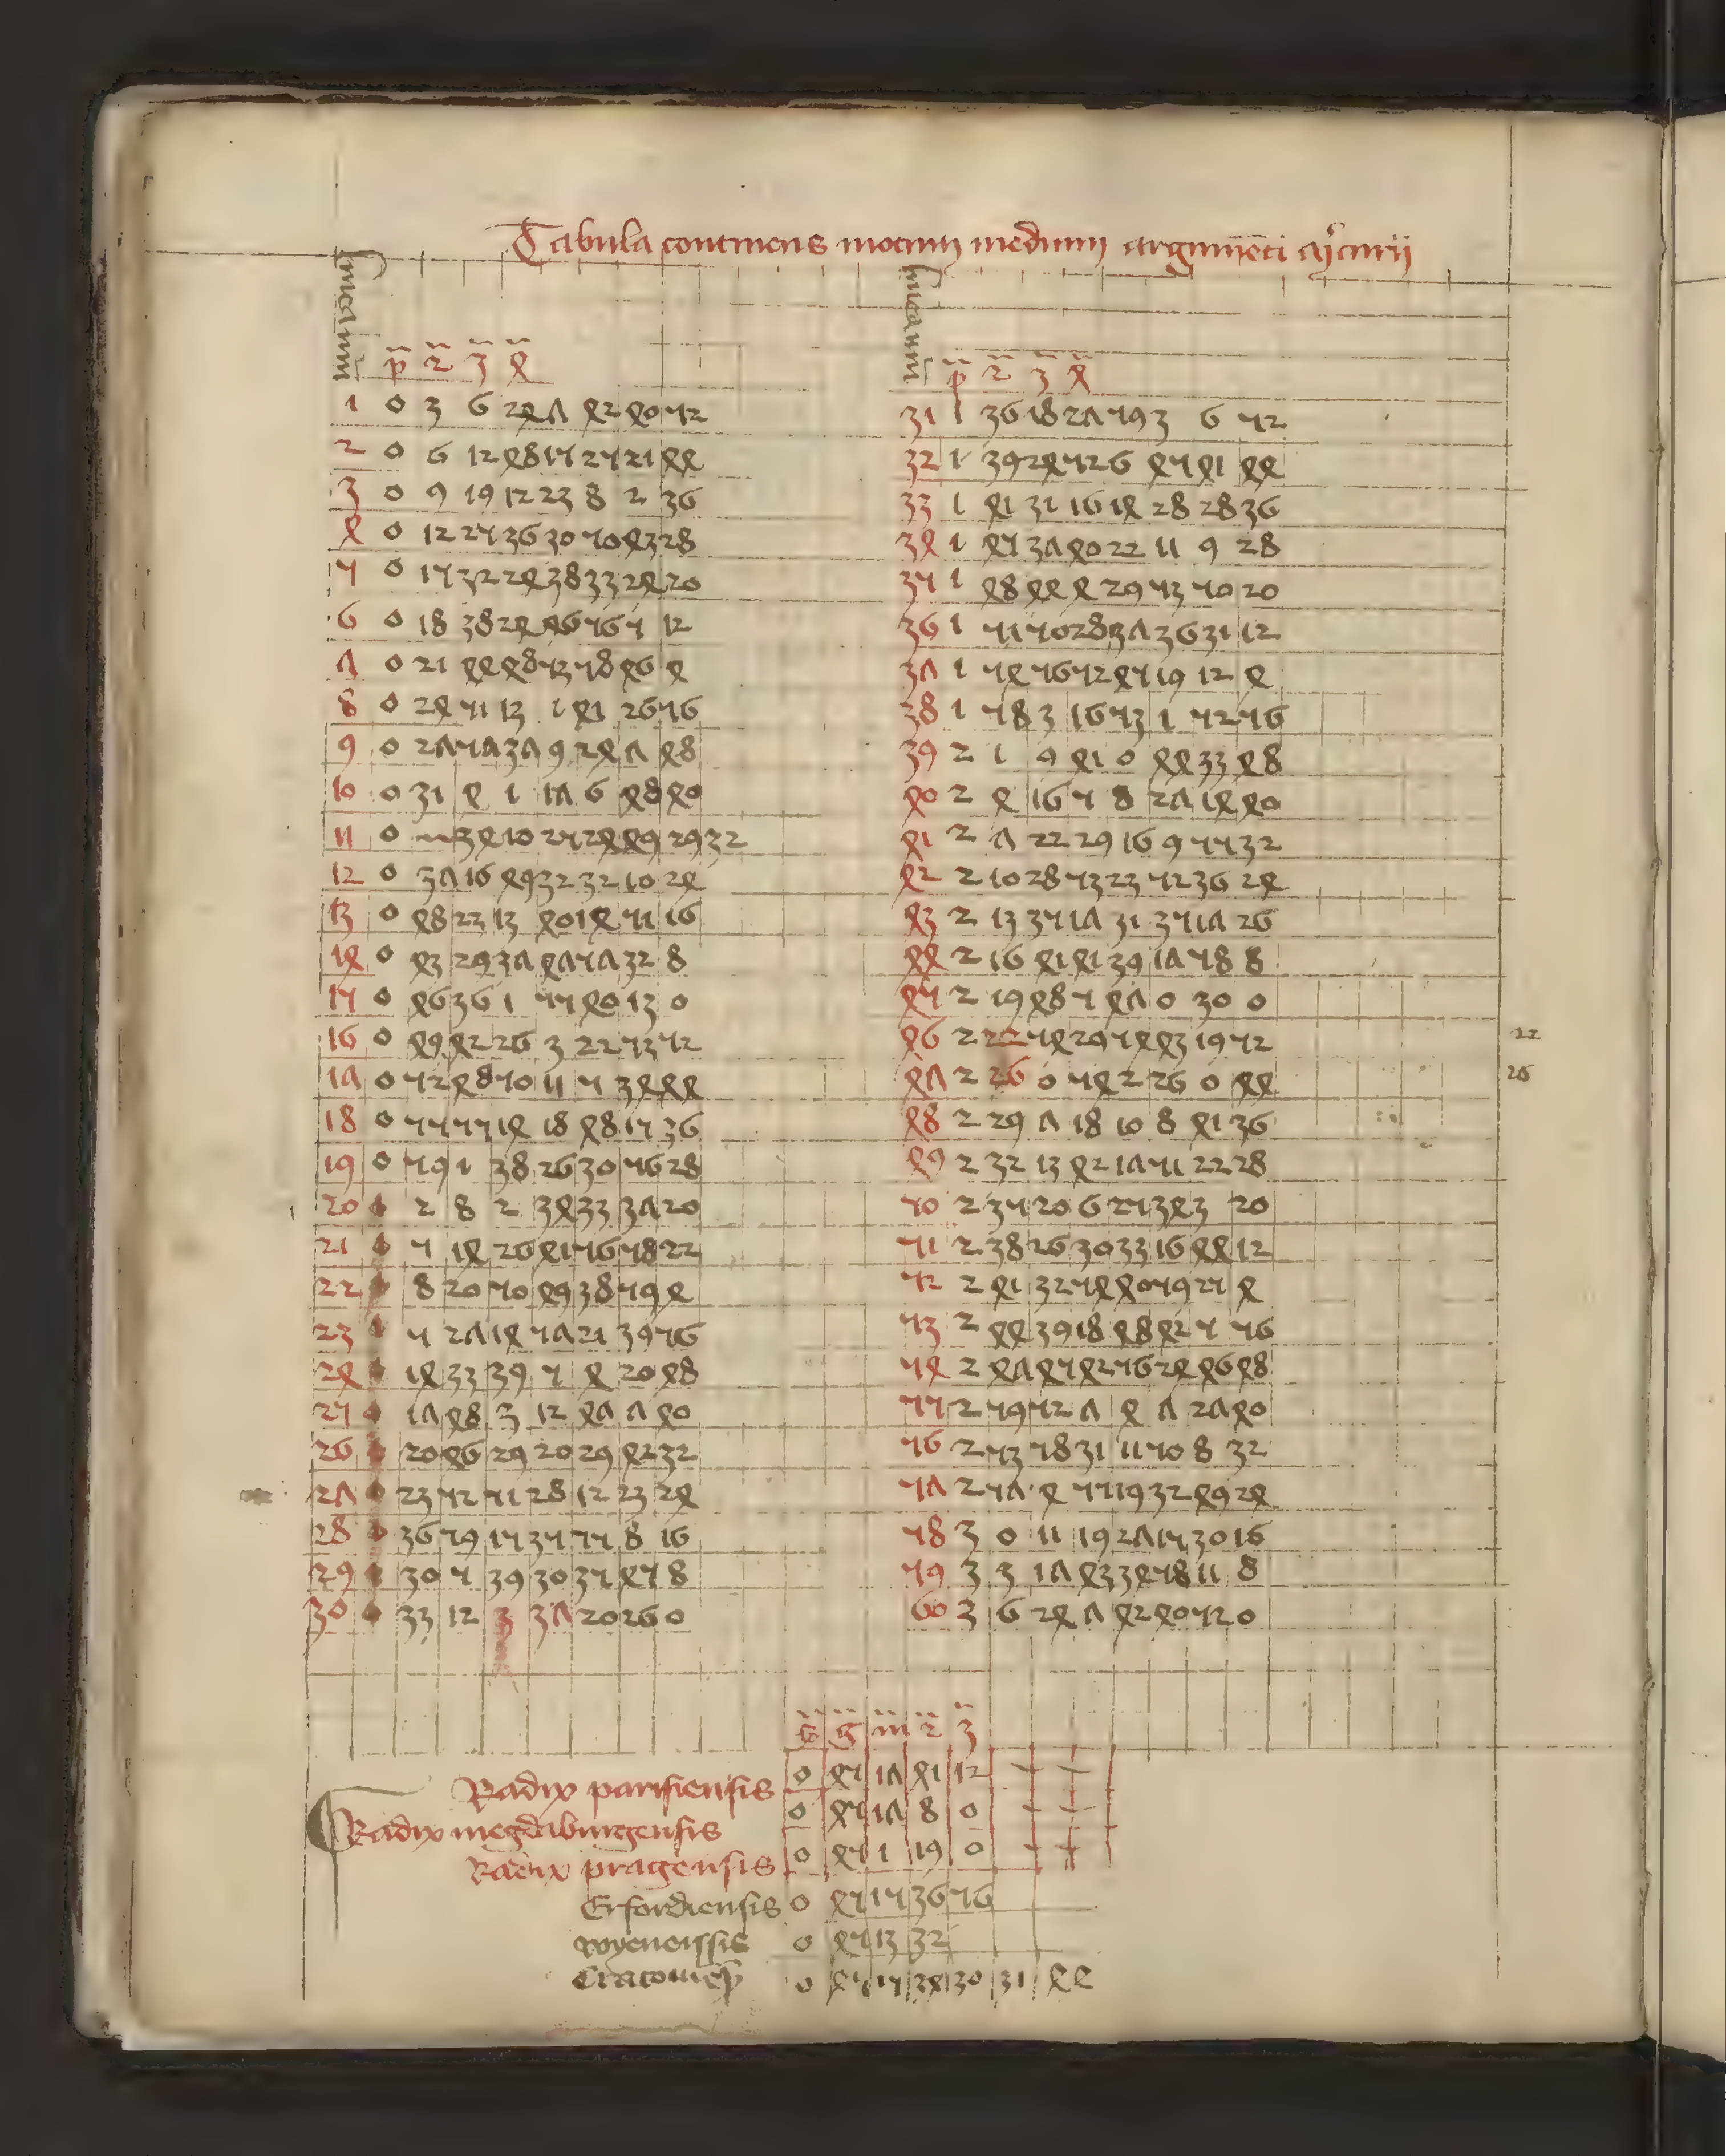 Tabula continens motum medium argumenti mercurii
p 2 3 4
1 0 3 6 24 7 42 40 52
2 0 6 12 48 15 25 21 44
3 0 9 19 12 23 8 2 36
4 0 12 25 36 30 50 43 28
5 0 15 32 24 38 33 24 20
6 0 18 38 24 46 56 5 12
7 0 21 44 48 53 58 46 4
8 0 24 51 13 1 41 26 56
9 0 27 57 37 9 24 7 48
10 0 31 4 1 17 6 48 40
11 0 34 10 25 24 49 29 32
12 0 37 16 49 32 32 10 24
13 0 48 23 13 40 14 51 16
14 0 43 29 37 47 57 32 8
15 0 46 36 1 55 40 13 0
16 0 49 42 26 3 22 53 52
17 0 52 48 50 11 5 34 44
18 0 55 55 14 18 48 15 36
19 0 59 1 38 26 30 56 28
20 1 2 8 2 34 33 37 20
21 1 5 14 26 41 56 58 22
22 1 8 20 50 49 38 59 4
23 1 5 27 14 57 21 39 56
24 1 14 33 39 5 4 20 48
25 1 17 48 3 12 47 7 40
26 1 20 46 29 20 29 42 32
27 1 23 52 51 28 12 23 24
28 1 36 59 15 35 55 8 16
29 1 30 5 39 30 35 45 8
30 1 33 12 3 37 20 26 0
p 2 3 4
31 1 36 18 27 59 3 6 52
32 1 39 24 52 6 45 41 44
33 1 41 31 16 14 28 28 36
34 1 45 37 40 22 11 9 28
35 1 48 44 4 29 53 50 20
36 1 51 50 28 37 36 31 12
37 1 54 56 52 45 19 12 4
38 1 58 3 16 53 1 52 56
39 2 1 9 41 0 44 33 48
40 2 4 16 5 8 27 14 40
41 2 7 22 29 16 9 55 32
42 2 10 28 53 23 52 36 24
43 2 13 35 17 31 35 17 26
44 2 16 41 41 39 17 58 8
45 2 19 48 5 47 0 30 0
46 2 22 54 29 54 43 19 52 22
47 2 26 0 54 2 26 0 44 26
48 2 29 7 18 10 8 41 36
49 2 32 13 42 17 51 22 28
50 2 35 20 6 25 34 3 20
51 2 38 26 30 33 16 44 12
52 2 41 32 54 40 59 25 4
53 2 44 39 18 48 42 5 56
54 2 47 45 42 56 24 46 48
55 2 59 52 7 4 7 27 40
56 2 53 58 31 11 50 8 32
57 2 57 4 55 19 32 49 24
58 3 0 11 19 27 15 30 16
59 3 3 17 43 34 58 11 8
60 3 6 24 7 42 40 52 0
s g m 2 3
Radix parisiensis 0 45 17 41 12
Radix megdaburgensis 0 45 17 8 0
Radix pragensis 0 45 1 19 0
Erfordiensis 0 45 15 36 56
wyenenssis 0 45 13 32
Cracouiens 0 45 15 34 30 31 44